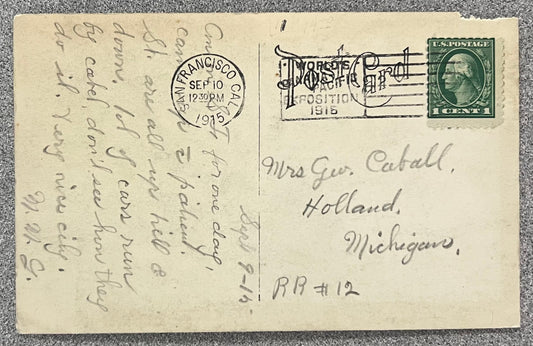 Post Card
SAN FRANCISCO, CAL.
SEP 10
12 30 PM
1915
WORLD'S
PANAMA-PACIFIC
EXPOSITION
1915
U.S. POSTAGE
1 CENT 1
Sept 9-15
for one day,
came patient.
St. are all up hill &
down, lot of cars run
by cabel don't see how they
do it. Very nice city.
Mrs Geo. Caball.
Holland,
Michigan,
RR #12